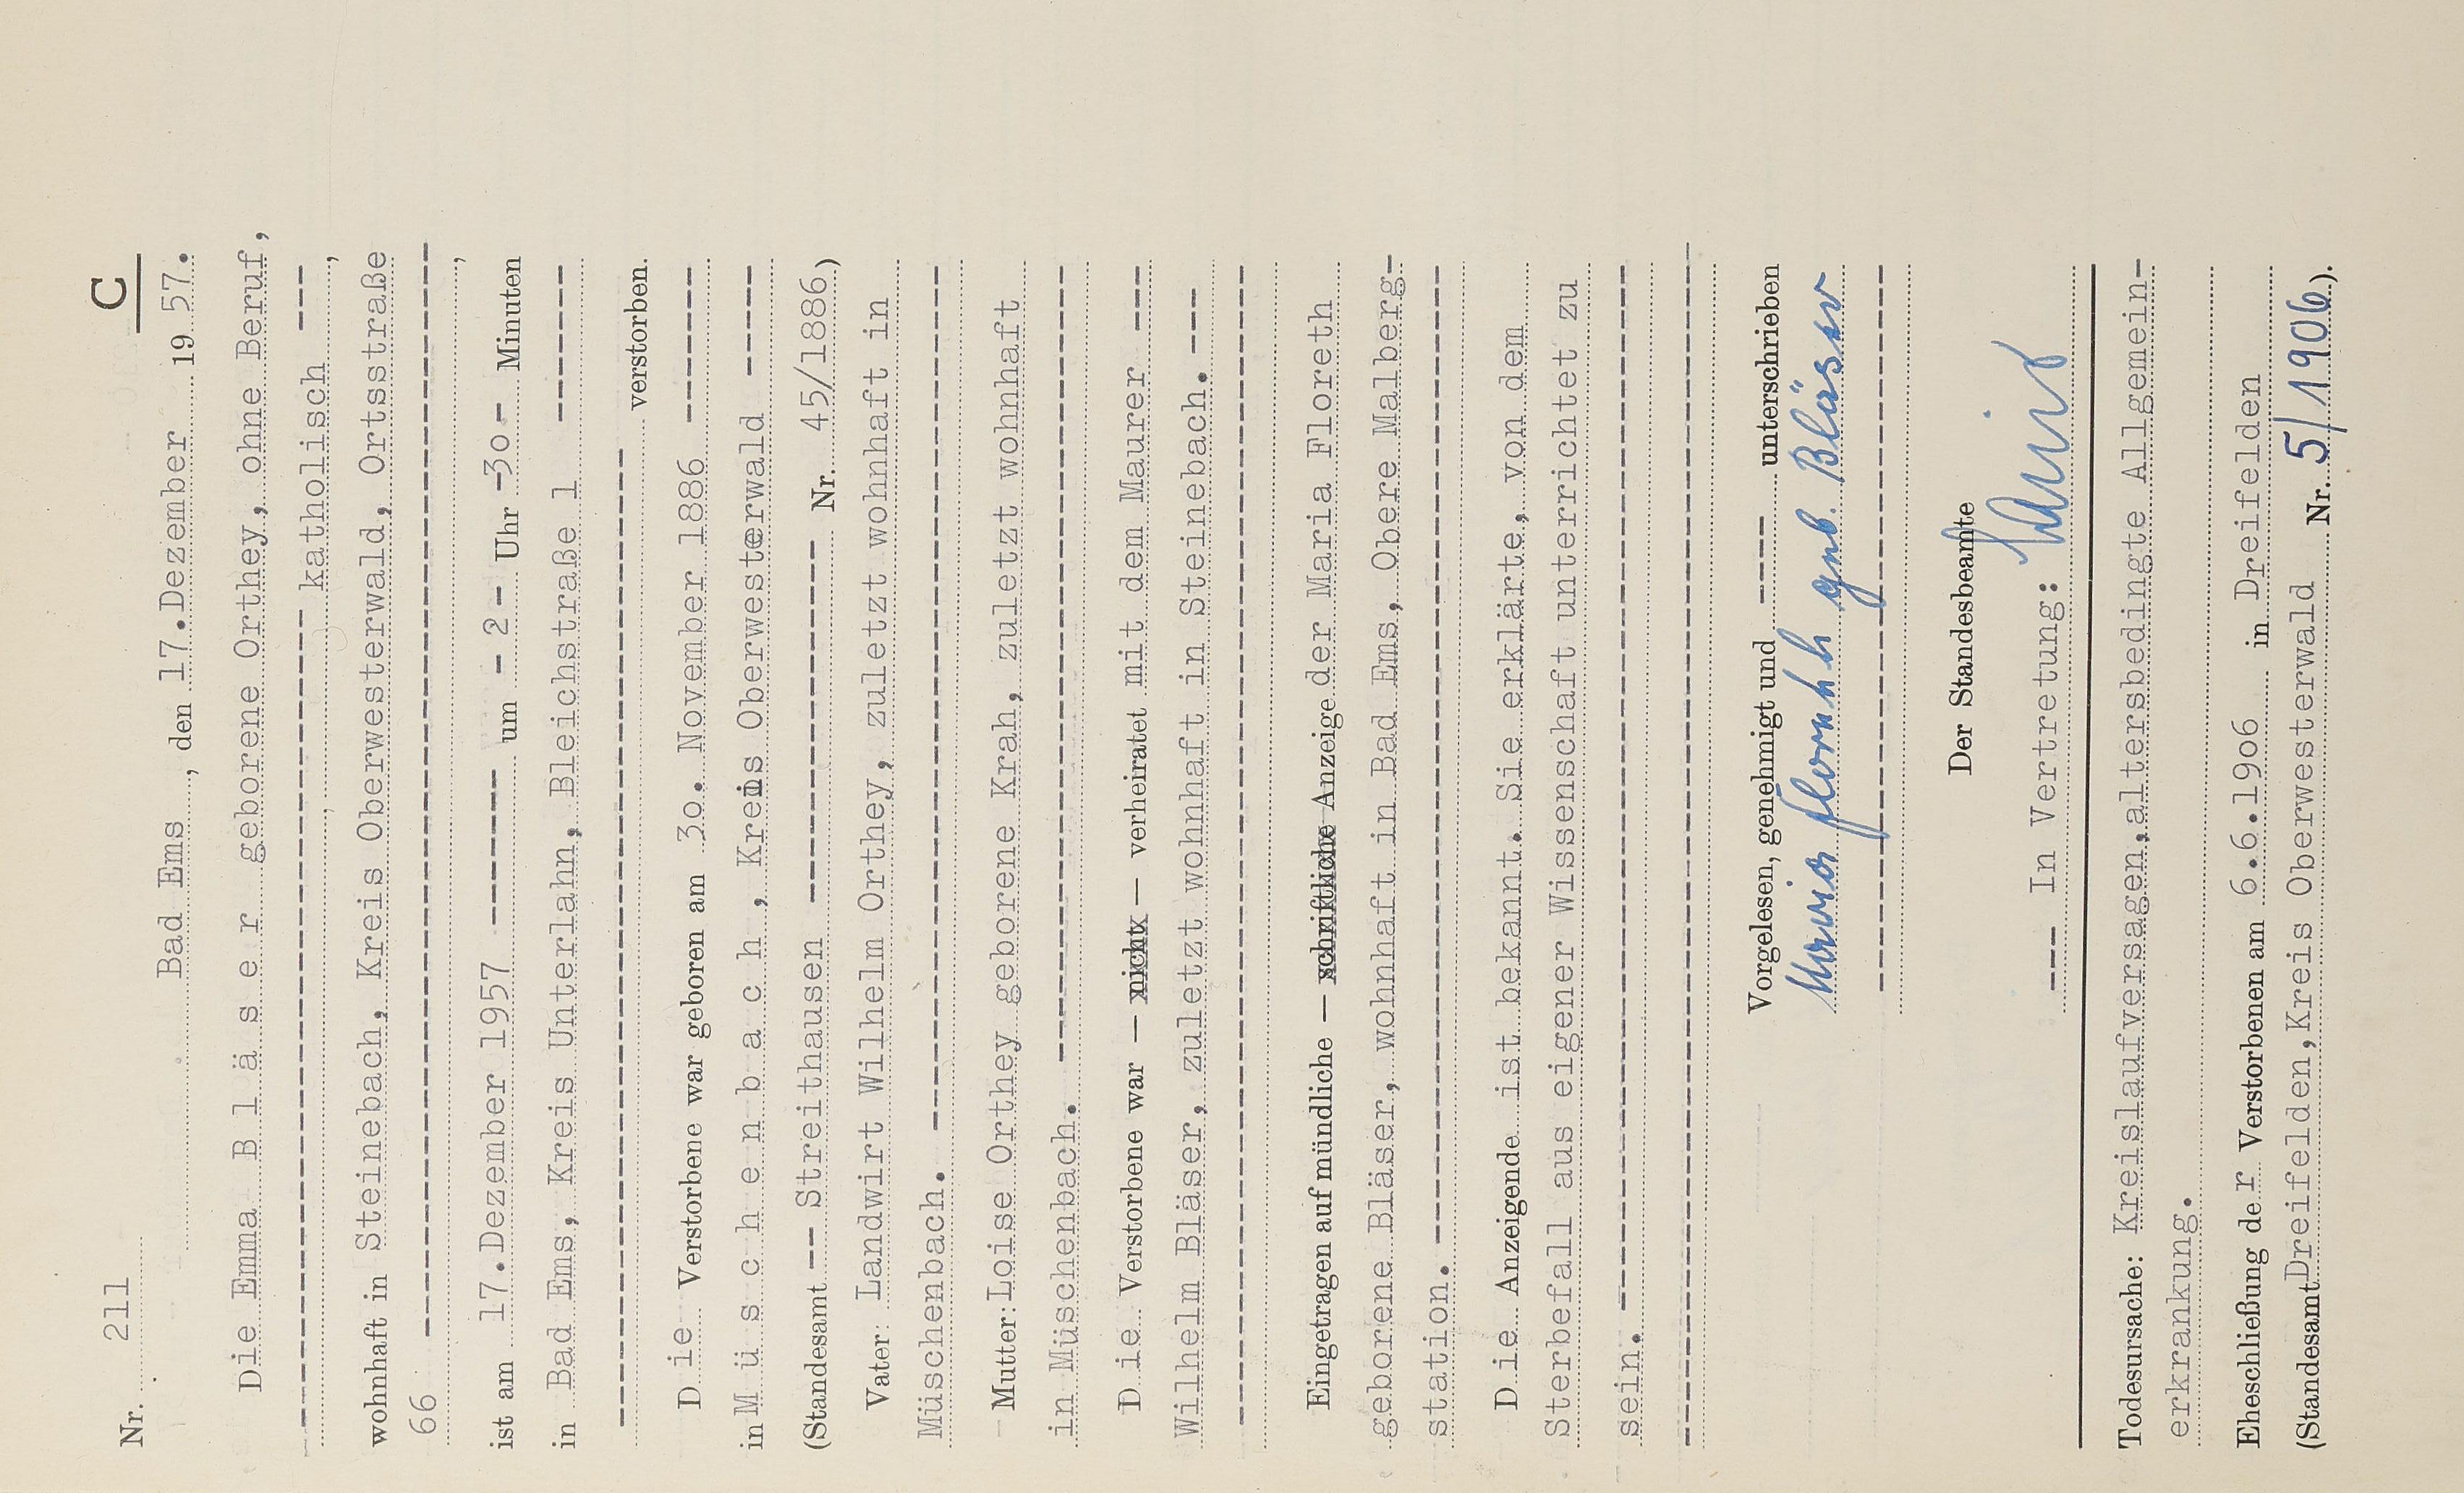 C
Nr. 211
Bad Ems, den 17.Dezember 1957.
Die Emma B l ä s e r geborene Orthey, ohne Beruf,
---------------------------- katholisch ----,
wohnhaft in Steinebach, Kreis Oberwesterwald, Ortsstraße
66 ------------------------------------------------,
ist am 17.Dezember 1957 -------- um - 2 - Uhr -3o- Minuten
in Bad Ems, Kreis Unterlahn, Bleichstraße 1 --------
------------------------------------------- verstorben.
Die Verstorbene war geboren am 3o. November 1886 --------
in M ü s c h e n b a c h , Kreis Oberwesterwald ------
(Standesamt -- Streithausen ------------------- Nr. 45/1886)
Vater: Landwirt Wilhelm Orthey, zuletzt wohnhaft in
Müschenbach. ---------------------------------------
Mutter: Loise Orthey geborene Krah, zuletzt wohnhaft
in Müschenbach. ------------------------------------
Die Verstorbene war — nicht — verheiratet mit dem Maurer ----
Wilhelm Bläser, zuletzt wohnhaft in Steinebach. ----
----------------------------------------------------
Eingetragen auf mündliche — schriftliche Anzeige der Maria Floreth
geborene Bläser, wohnhaft in Bad Ems, Obere Malberg-
station. -------------------------------------------
Die Anzeigende ist bekannt. Sie erklärte, von dem
Sterbefall aus eigener Wissenschaft unterrichtet zu
sein. ----------------------------------------------
----------------------------------------------------
Vorgelesen, genehmigt und ----- unterschrieben
Maria Floreth geb. Bläser
----------------------------------------------------
Der Standesbeamte
---- In Vertretung:
Todesursache: Kreislaufversagen,altersbedingte Allgemein-
erkrankung.
Eheschließung der Verstorbenen am 6.6.19o6 in Dreifelden
(Standesamt Dreifelden,Kreis Oberwesterwald Nr. 5/1906).